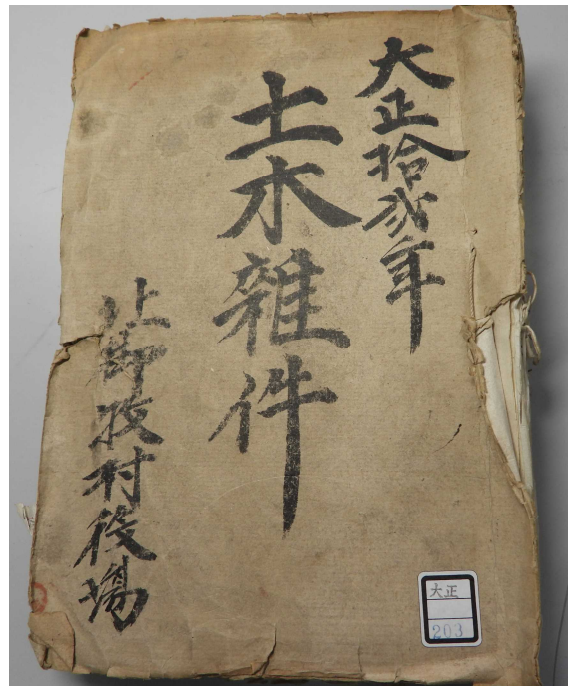 大正拾弐年
土木雜件
上郷村役場
大正
203